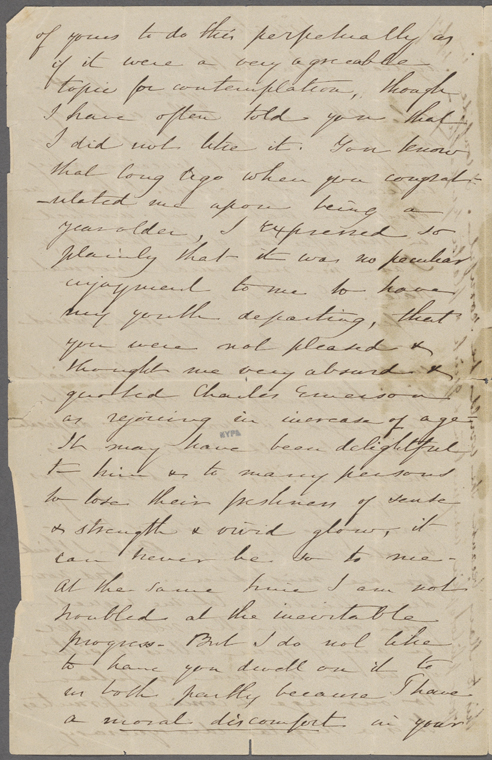 of yours to do this perpetually as
if it were a very agreeable
topic for contemplation, though
I have often told you that
I did not like it. You know
that long ago when you congrat-
-ulated me upon being a
year older, I expressed so
plainly that it was no peculiar
enjoyment to me to have
my youth departing, that
you were not pleased &
thought me very absurd &
quoted Charles Emerson
as rejoicing in increase of age.
It may have been delightful
to him & to many persons
to lose their freshness of sense
& strength & vivid glow, it
can never be so to me -
At the same time I am not
troubled at the inevitable
progress - But I do not like
to have you dwell on it to
us both partly because I have
a moral discomfort in your
NYPL